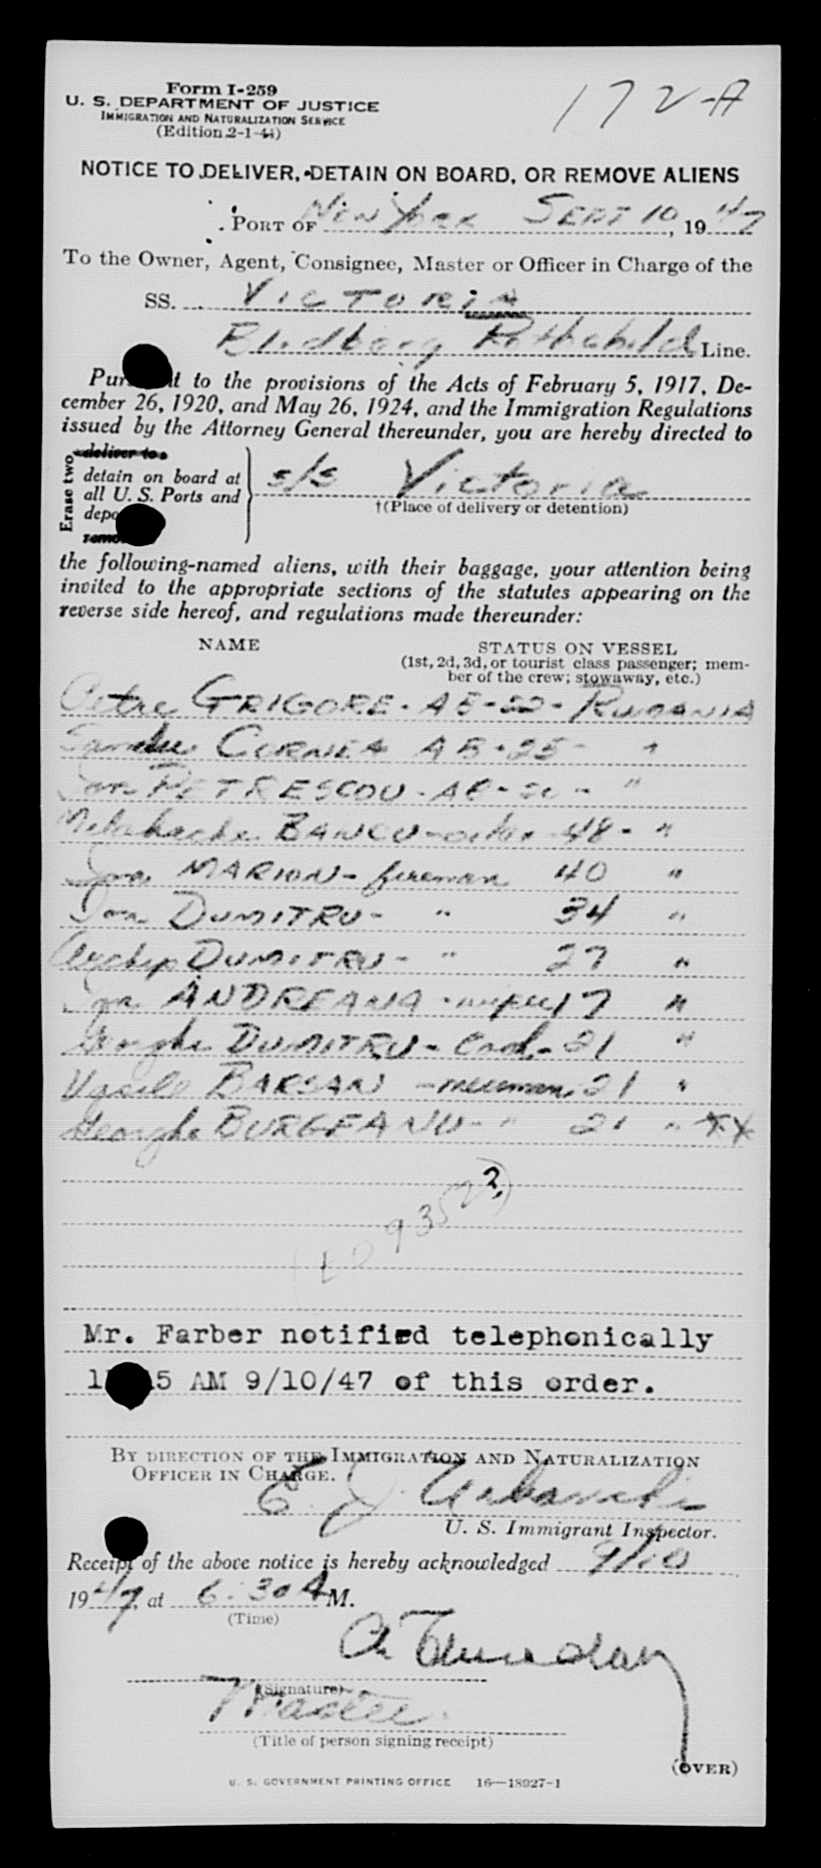 Form I-259
U. S. DEPARTMENT OF JUSTICE
IMMIGRATION AND NATURALIZATION SERVICE
(Edition 2-1-44)
172-A
NOTICE TO DELIVER, DETAIN ON BOARD, OR REMOVE ALIENS
PORT OF New York Sept 10, 1947
To the Owner, Agent, Consignee, Master or Officer in Charge of the
SS. VICTORIA
Rothschild Line.
Pursuant to the provisions of the Acts of February 5, 1917, De-
cember 26, 1920, and May 26, 1924, and the Immigration Regulations
issued by the Attorney General thereunder, you are hereby directed to
Erase two
deliver to
detain on board at
all U. S. Ports and
s/s Victoria
†(Place of delivery or detention)
the following-named aliens, with their baggage, your attention being
invited to the appropriate sections of the statutes appearing on the
reverse side hereof, and regulations made thereunder:
NAME STATUS ON VESSEL
(1st, 2d, 3d, or tourist class passenger; mem-
ber of the crew; stowaway, etc.)
Petre GRIGORE - AB - 22 - RUMANIA
CURNEA AB - 25 - "
Ion PETRESCOU - AB - "
BANCU - 48 - "
Ion MARION - fireman 40 "
Ion DUMITRU - " 34 "
DUMITRU - " 27 "
Ion ANDREANA - wiper 17 "
Georghe DUMITRU - Cook - 21 "
Vasile BARSAN - messman 21 "
Georghe BURGEANU - " 21 " **
Mr. Farber notified telephonically
AM 9/10/47 of this order.
BY DIRECTION OF THE IMMIGRATION AND NATURALIZATION
OFFICER IN CHARGE.
E. J. Urbanski
U. S. Immigrant Inspector.
Receipt of the above notice is hereby acknowledged 9/10
1947, at 6:30 A M.
(Time)
(Signature)
Master
(Title of person signing receipt)
(OVER)
U. S. GOVERNMENT PRINTING OFFICE 16—18927-1